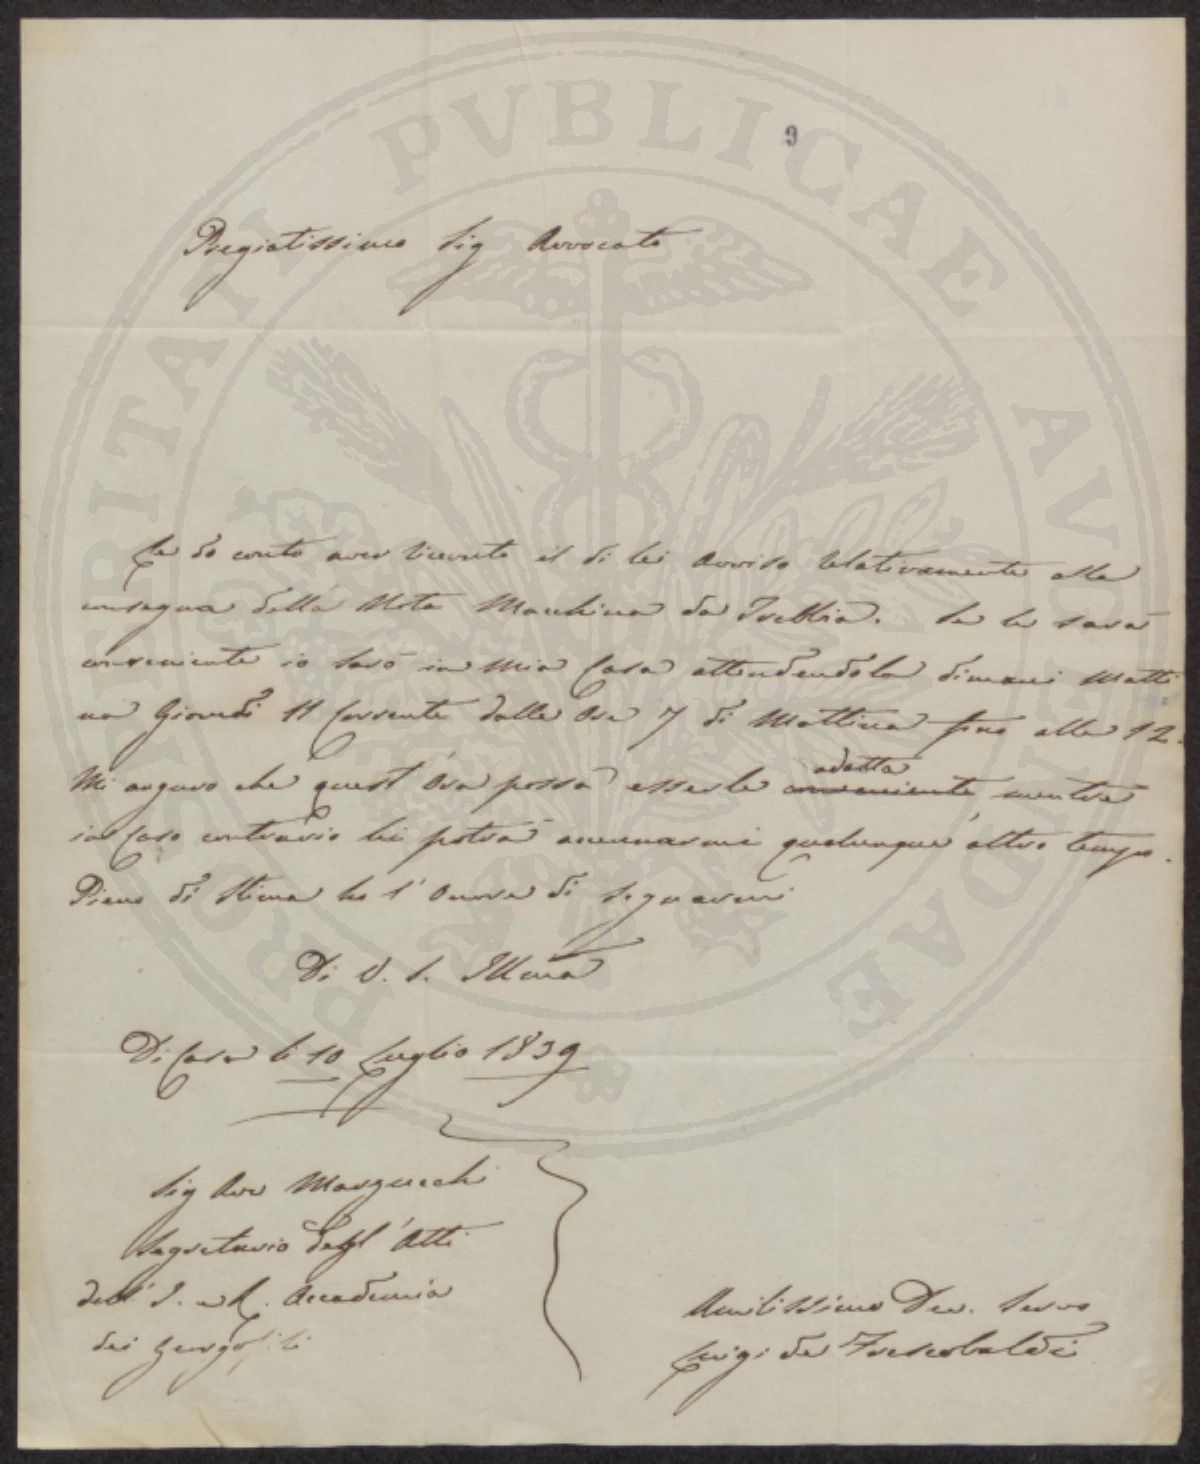 PROSPERITATI PVBLICAE AVGENDAE
9
Pregiatissimo Sig Avvocato
Le do conto aver ricevuto il di lei avviso relativamente alla
consegna della Nota Macchina da Trebbia. Se le sarà
conveniente io sarò in Mia Casa attendendola dimani Matti
na Giovedì 11 Corrente dalle Ore 7 di Mattina fino alle 12.
Mi auguro che quest'Ora possa esserle conveniente adatta mentre
in Caso contrario lei potrà accennarmi qualunque altro tempo.
Pieno di Stima ho l'Onore di segnarmi
Di V. S. Illma
Di Casa li 10 Luglio 1839
Sig Avv Marzucchi
Segretario degl'Atti
dell'I. e R. Accademia
dei Georgofili
Umilissimo Dev. Servo
Luigi de Frescobaldi